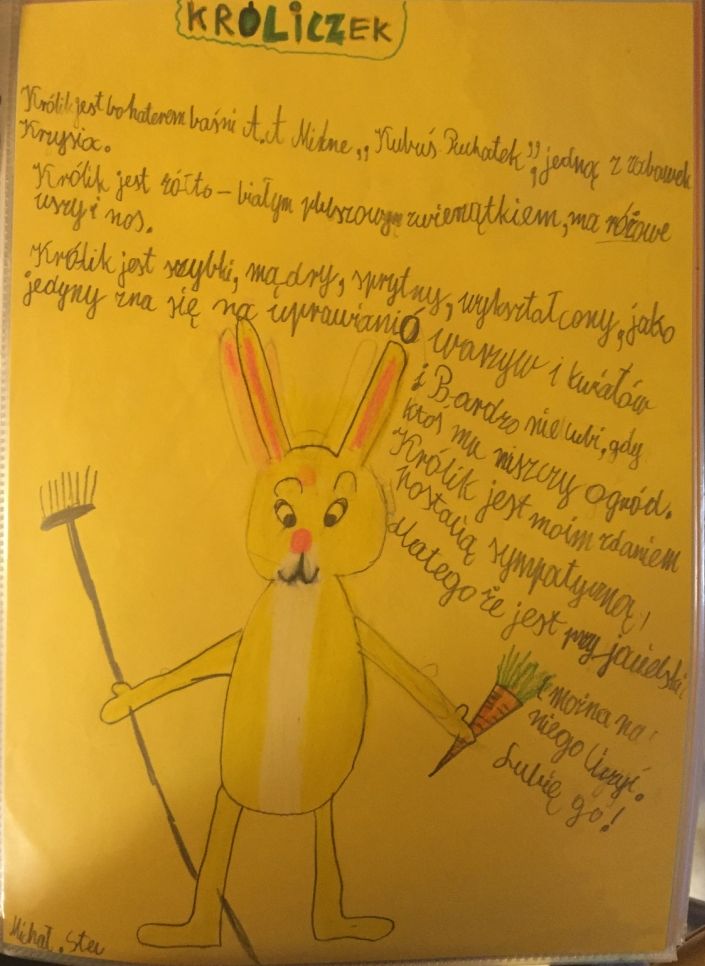 KRÓLICZEK
Królik jest bohaterem baśni A.A Milne „Kubuś Puchatek”, jedną z zabawek
Krzysia.
Królik jest żółto-białym pluszowym zwierzątkiem, ma różowe
uszy i nos.
Królik jest szybki, mądry, sprytny, wykształcony, jako
jedyny zna się na uprawianiÓ warzyw i kwiatów
i Bardzo nie lubi, gdy
ktoś mu niszczy ogród.
Królik jest moim zdaniem
postacią sympatyczną,
dlatego że jest przyjacielski
i można na
niego liczyć.
Lubię go!
Michał